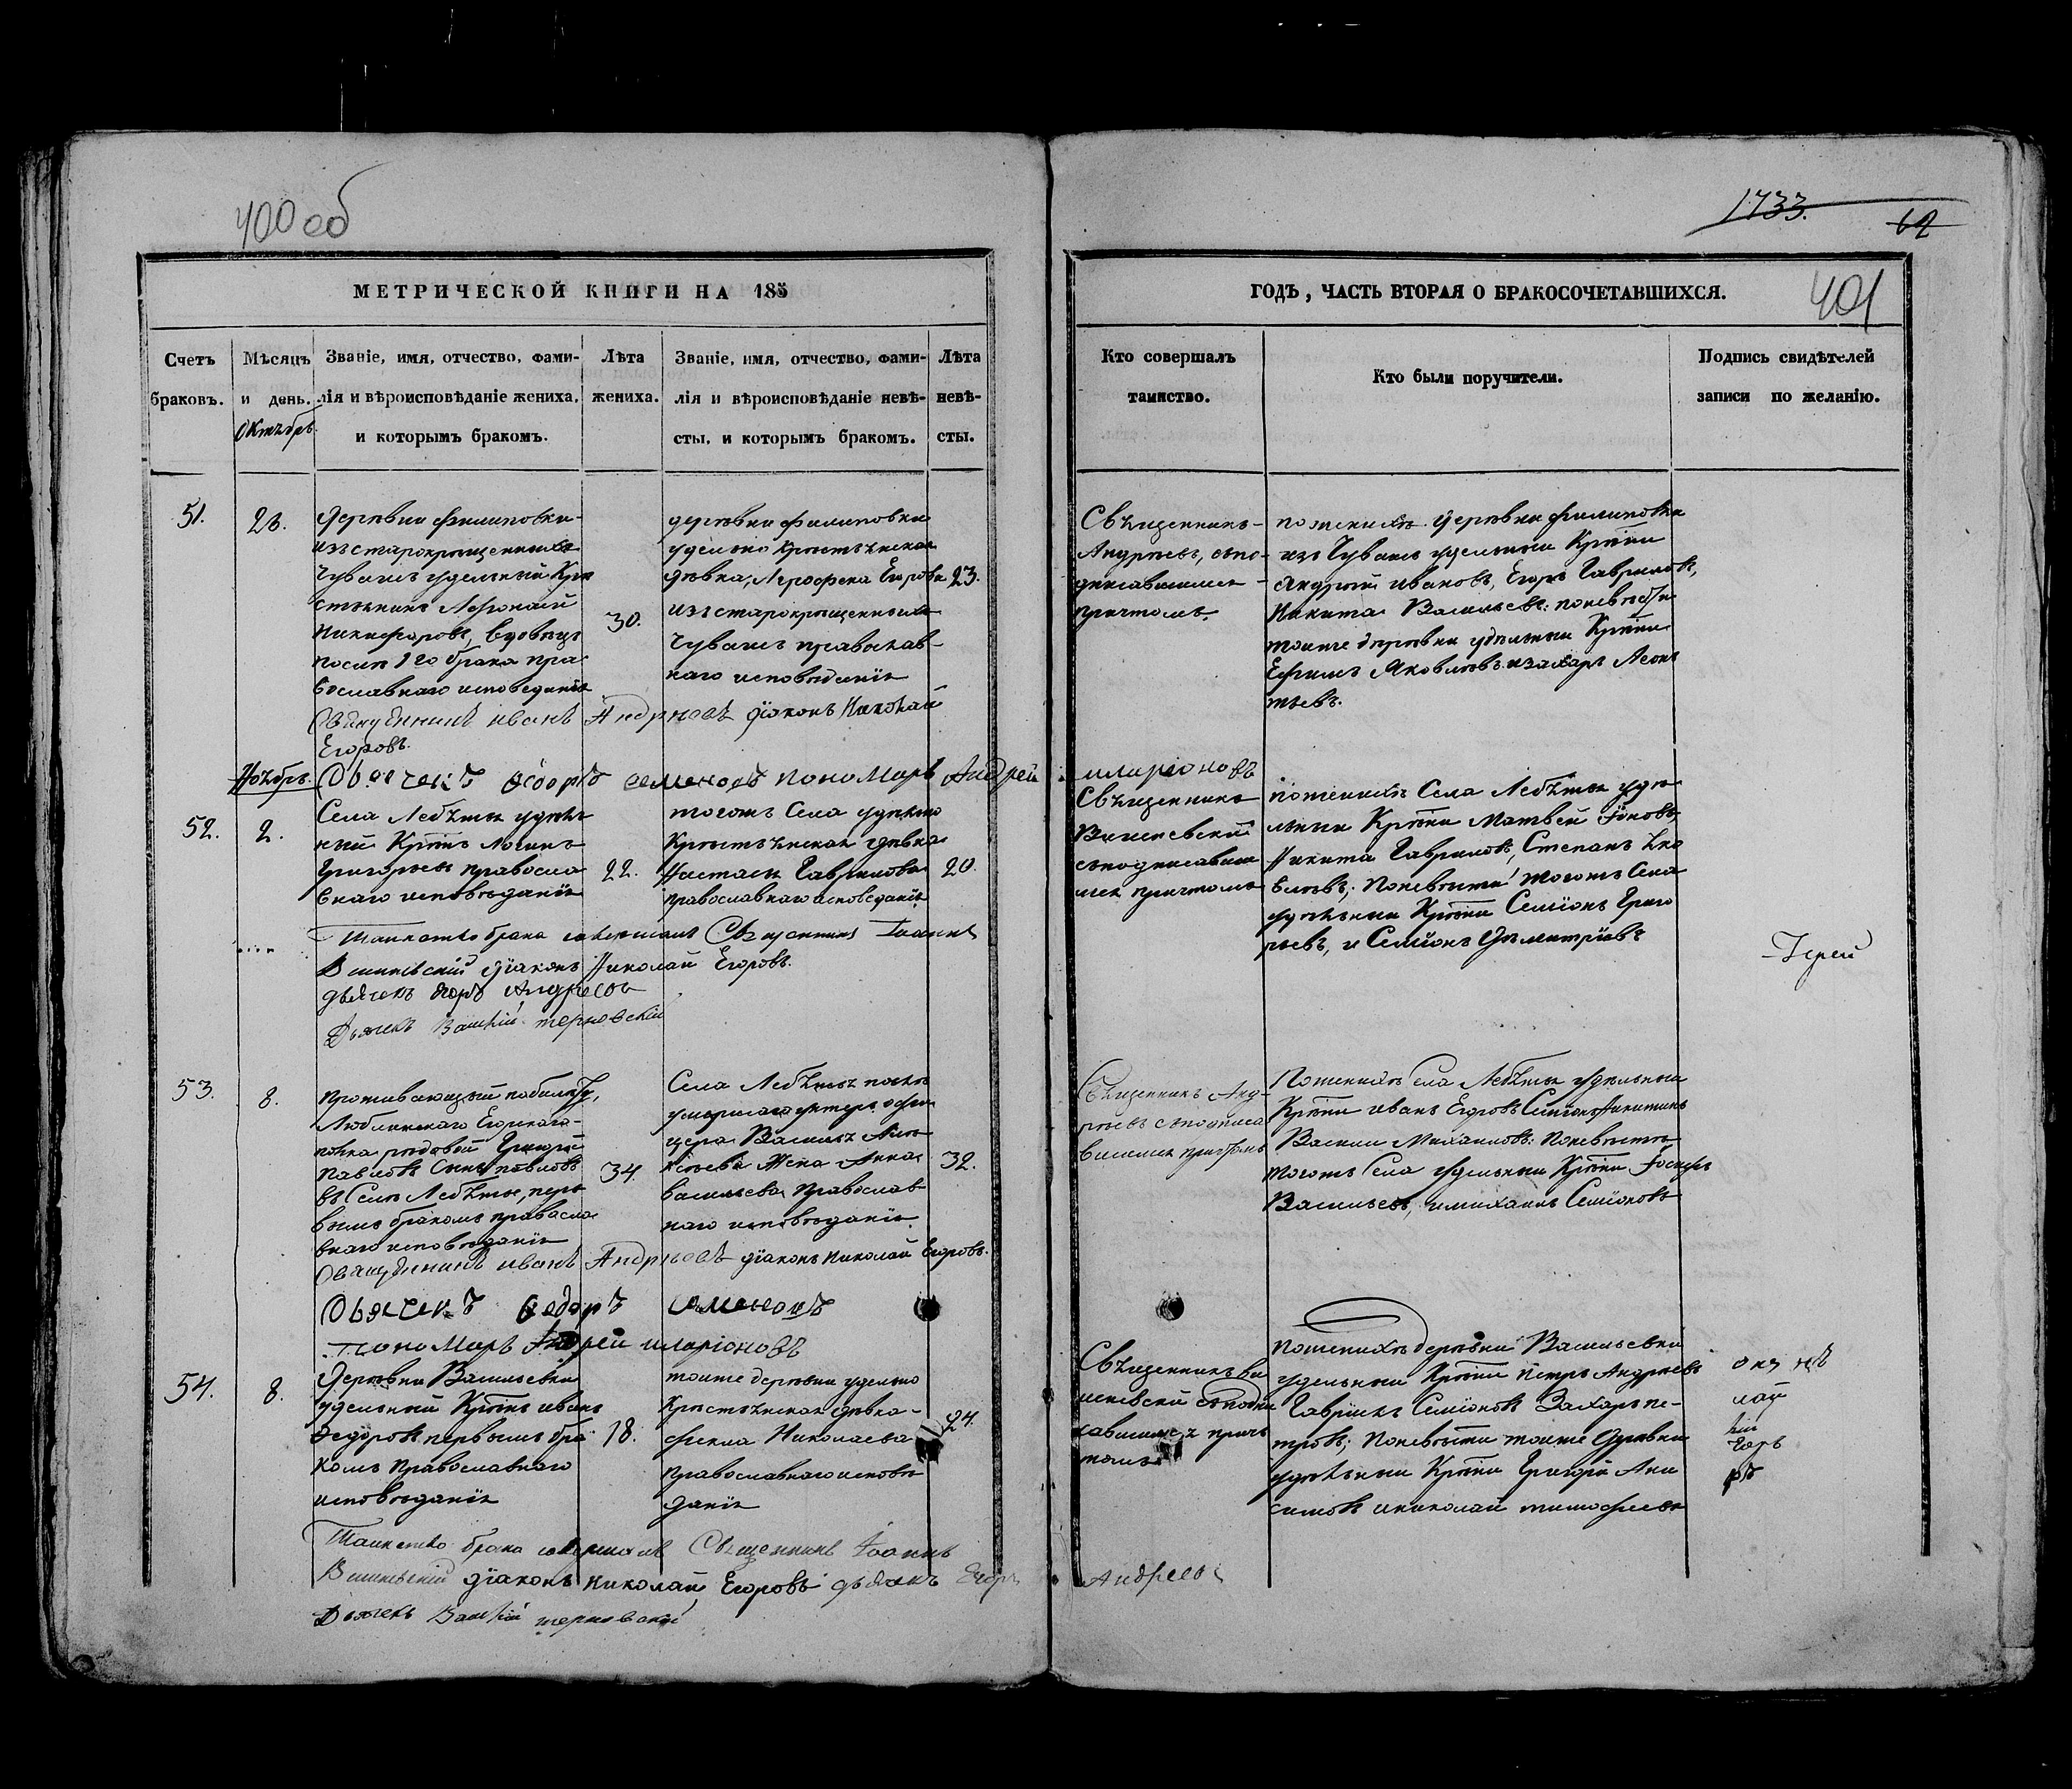 400 об
МЕТРИЧЕСКОЙ КНИГИ НА 185
Счетъ браковъ.
Мѣсяцъ и день.
Октябрь.
Званіе, имя, отчество, фами-
лія и вѣроисповѣданіе жениха,
и которымъ бракомъ.
Лѣта
жениха.
Званіе, имя, отчество, фами-
лія и вѣроисповѣданіе невѣ-
сты, и которымъ бракомъ.
Лѣта
невѣ-
сты.
51.
Деревни Филиповки
изъ старокрещенныхъ
Чувашъ удельный Кре
стьянинъ
Никифоровъ, вдовецъ
после 1го брака пра
вославнаго исповеданія
30.
деревни Филиповки
удельно Крестьянская
девка, Егорова
изъ старокрещенныхъ
Чувашъ православ-
наго исповеданія
23.
Священникъ Иванъ Андреевъ діаконъ Николай
Егоровъ.
Дьячекъ Ѳеодоръ Семеновъ пономарь Андрей иларіоновъ
Ноябрь.
52.
2.
Села удель
ный Крест. Логинъ
Григорьевъ правосла
внаго исповеданія
22.
тогожъ Села удельно
Крестьянская девка
Настасья Гаврилова
православнаго исповеданія
20.
Таинство брака совершалъ Священникъ Іоаннъ
діаконъ Николай Егоровъ.
дьячекъ Егоръ Андреевъ
Дьячекъ
53.
8.
Григорій
Павловъ Сынъ Павловъ
въ Селе пер
вымъ бракомъ правосла
внаго исповеданія
34.
Села после
умершаго унтеръ офи
цера Василья Але
ксеева Жена Анна
Васильева Православ
наго исповеданія
32.
Священникъ Иванъ Андреевъ діаконъ Николай Егоровъ.
Дьячекъ Ѳедоръ Семеновъ
пономарь Андрей иларіоновъ
54.
8.
Деревни Васильевки
удельный Крест. Иванъ
Ѳедоровъ первымъ бра
комъ Православнаго
исповеданія
18.
тоиже деревни удельно
Крестьянская девка
Фекла Николаева
Православнаго испове
данія
24.
Таинство брака совершалъ Священникъ Іоаннъ
діаконъ Николай Егоровъ дьячекъ Егоръ Андреевъ
Дьячекъ
1733.
62
401
ГОДЪ, ЧАСТЬ ВТОРАЯ О БРАКОСОЧЕТАВШИХСЯ.
Кто совершалъ
таинство.
Кто были поручители.
Подпись свидѣтелей
записи по желанію.
Священникъ
Андреевъ, съпо-
дписавшимся
причтомъ.
по женихе деревни Филиповки
изъ Чувашъ удельныи Крестьяни
Андрей Ивановъ, Егоръ Гавриловъ,
Никита Васильевъ: по невесте
тоиже деревни удельныи Крестьяни
Ефимъ Яковлевъ и Захаръ Леонъ
тьевъ.
Священникъ
съподписавши
мся причтомъ
по женихе Села удe
льныи Крестьяни Матвей
Никита Гавриловъ, Степанъ Яко
влевъ; По невесте тогожъ Села
удельныи Крестьяни Семіонъ Григо
рьевъ, и Семіонъ Димитріевъ
Іерей
Священникъ Анд-
реевъ съподписа
вшимся причтомъ
По женихе Села удельныи
Крестьяни Иванъ Егоровъ Семіонъ Никитинъ
Василій Михаиловъ: По невесте
тогожъ Села удельныи Крестьяни
Васильевъ, и Михаилъ Семіоновъ
Священникъ
съподпи
савшимся прич
томъ
По женихе деревни Васильевки
удельныи Крестьяни Петръ Андреевъ
Гавріилъ Семіоновъ Захаръ Пе-
тровъ; По невесте тоиже Деревни
удельныи Крестьяни Григорій Ани
симовъ и Николай Тимофеевъ